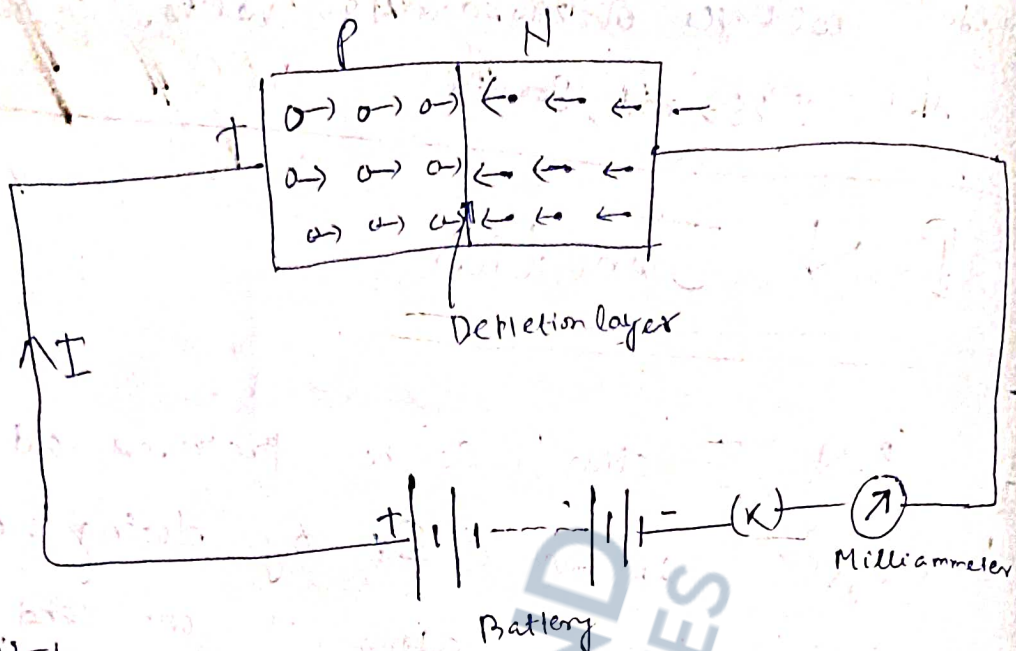 P N
+ -
Depletion layer
I
+ -
(K)
Milliammeter
Battery
ND
ES